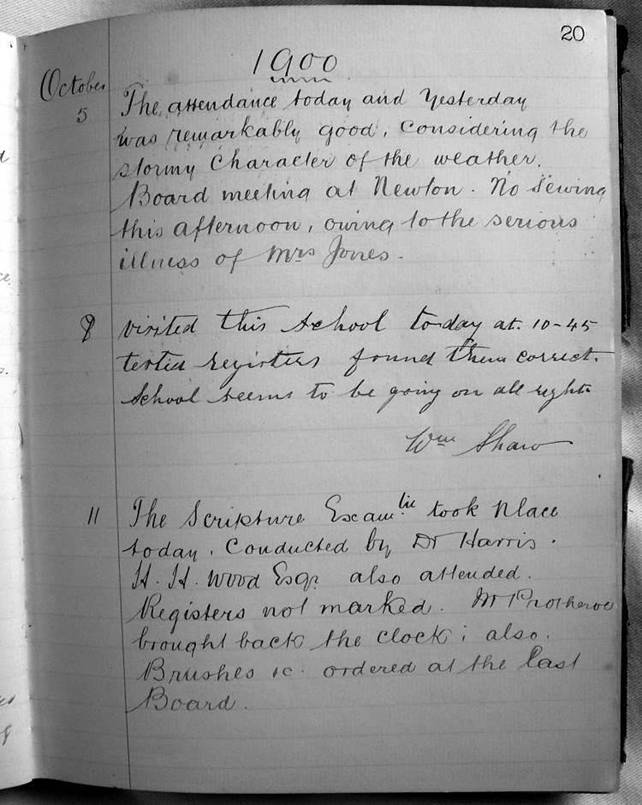 20
1900
October
5 The attendance today and Yesterday
was remarkably good, considering the
stormy Character of the weather.
Board meeting at Newton. No Sewing
this afternoon, owing to the serious
illness of Mrs Jones.
8 visited this School to-day at 10-45
tested registers found them correct.
School seems to be going on all right
Wm Shaw
11 The Scripture Examtn took Place
today. Conducted by Dr Harris.
H. H. Wood Esqr also attended.
Registers not marked. Mr Protheroe
brought back the clock; also.
Brushes &c. ordered at the last
Board.